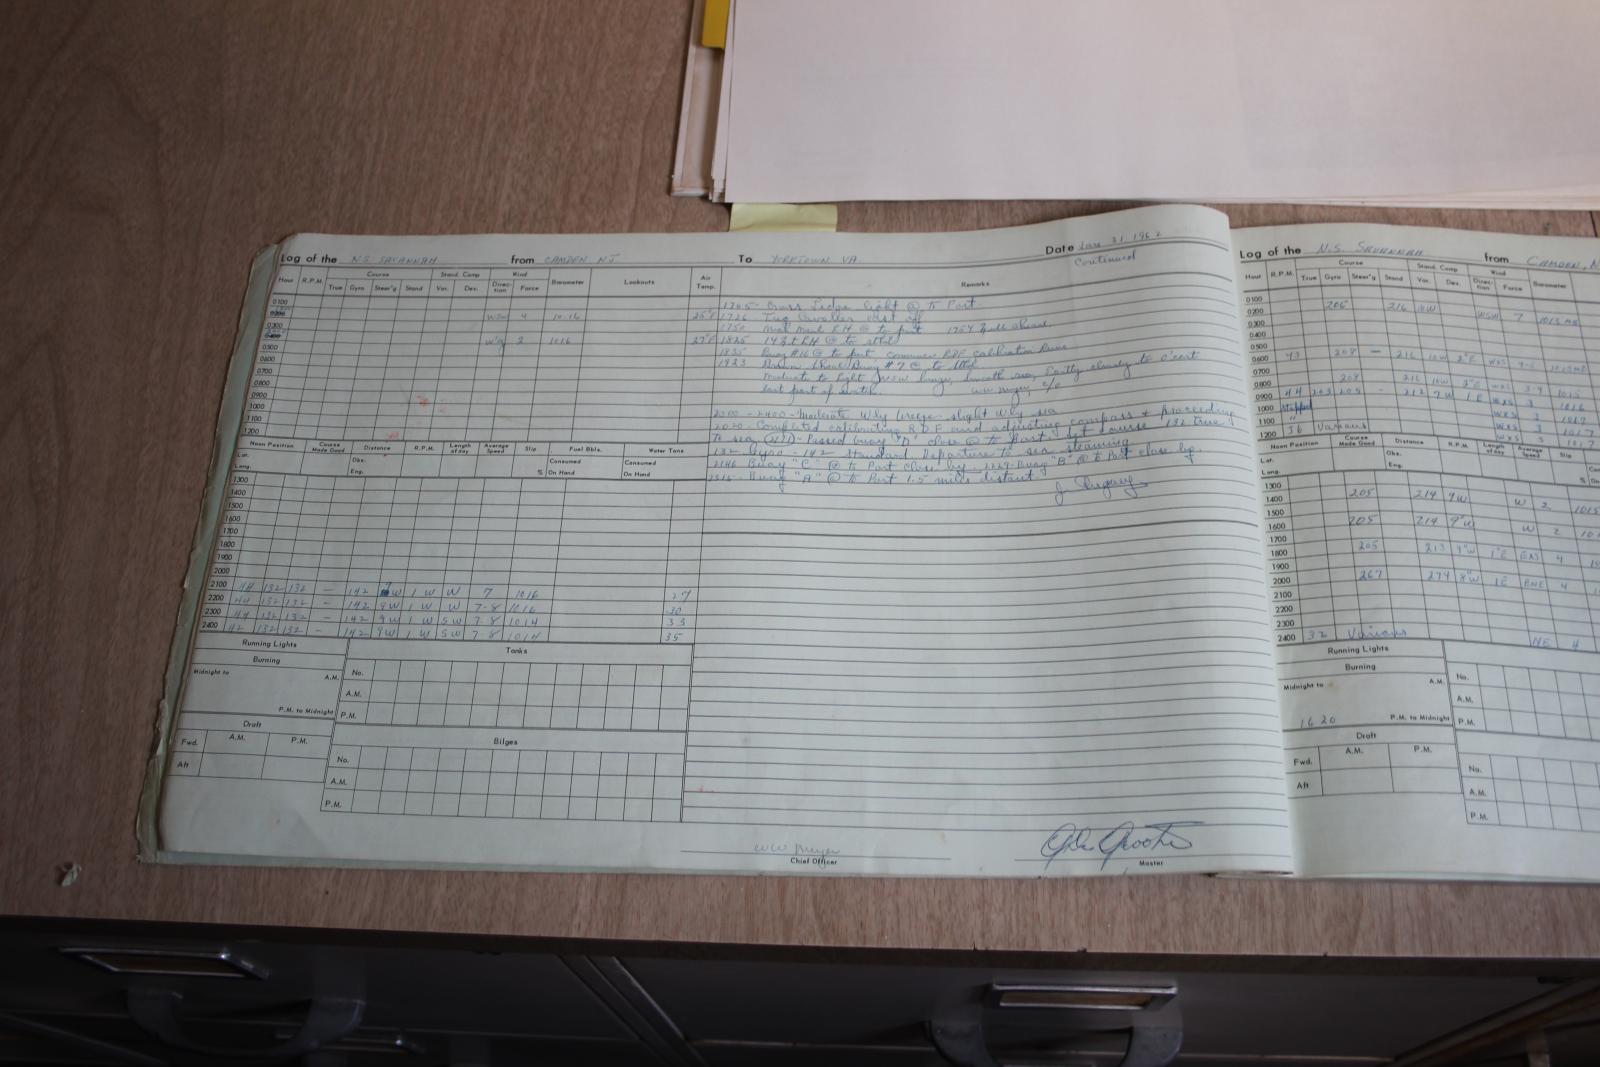 Log of the N.S. SAVANNAH from CAMDEN NJ To YORKTOWN VA Date Jan 31, 1962
Continued
Hour R.P.M. Course Stand. Comp. Wind Barometer Lookouts Air Temp. Remarks
True Gyro Steer'g Stand Var. Dev. Direction Force
0100 1705 - Cross Ledge light @ to Port
0200 WSW 4 10.16 25°F 1726
0300 1750 to port 1754 full ahead
0400 2 1016 27°F 1825 14 ft RH @ to stbd
0500 1835 Buoy #16 @ to port commence RDF calibration Runs
0600 1923 Brown Shoal Buoy #7 @ to stbd
0700 Moderate to light WSW breeze, smooth sea, Partly cloudy to o'cast
0800 last part of watch. WW Meyer 2/0
0900
1000 2000-2400 - Moderate W'ly breeze - slight W'ly sea
1100 2020 - Completed calibrating R.D.F. and adjusting compass & proceeding
1200 To sea. Passed buoy "D" close @ to Port. Set Course 132 True
132 Gyro - 142 Standard. Departure to sea steaming
2146 Buoy "C" @ to Port close by. 2229 Buoy "B" @ to Port close by.
2315 - Buoy "A" @ to Port 1.5 miles distant.
Noon Position Course Made Good Distance R.P.M. Length of day Average Speed Slip Fuel Bbls. Water Tons
Lat. Obs. Consumed Consumed
Long. Eng. % On Hand On Hand
1300
1400
1500
1600
1700
1800
1900
2000
2100 44 132 132 - 142 W 1 W W 7 1016 27
2200 44 132 132 - 142 9W 1 W W 7-8 1016 30
2300 44 132 132 - 142 9W 1 W SW 7-8 1014 33
2400 42 132 132 - 142 9W 1 W SW 7-8 1014 35
Running Lights Tanks
Burning No.
Midnight to A.M. A.M.
P.M. to Midnight P.M.
Draft Bilges
A.M. P.M. No.
Fwd. A.M.
Aft P.M.
WW Meyer
Chief Officer Master
Log of the N.S. SAVANNAH from CAMDEN, N
Hour R.P.M. Course Stand. Comp. Wind Barometer
True Gyro Steer'g Stand Var. Dev. Direction Force
0100
0200 206 216 10W WSW 7
0300
0400
0500
0600 43 208 - 216 10W 2°E WXS 4-5
0700
0800 208 216 10W 2°E WXS 3-4 1015
0900 44 203 205 - 212 9W 1E WXS 3 1016
1000 Stopped WXS 3 1016
1100 WXS 3 1017
1200 36 Various WXS 3 1017
Noon Position Course Made Good Distance R.P.M. Length of day Average Speed Slip
Lat. Obs.
Long. Eng. %
1300
1400 205 214 9W W 2 1015
1500
1600 205 214 9°W W 2
1700
1800 205 213 9°W 1°E 4
1900
2000 267 274 8°W 1E ENE 4
2100
2200
2300
2400 32 Various NE 4
Running Lights
Burning No.
Midnight to A.M. A.M.
1620 P.M. to Midnight P.M.
Draft
A.M. P.M.
Fwd. No.
Aft A.M.
P.M.